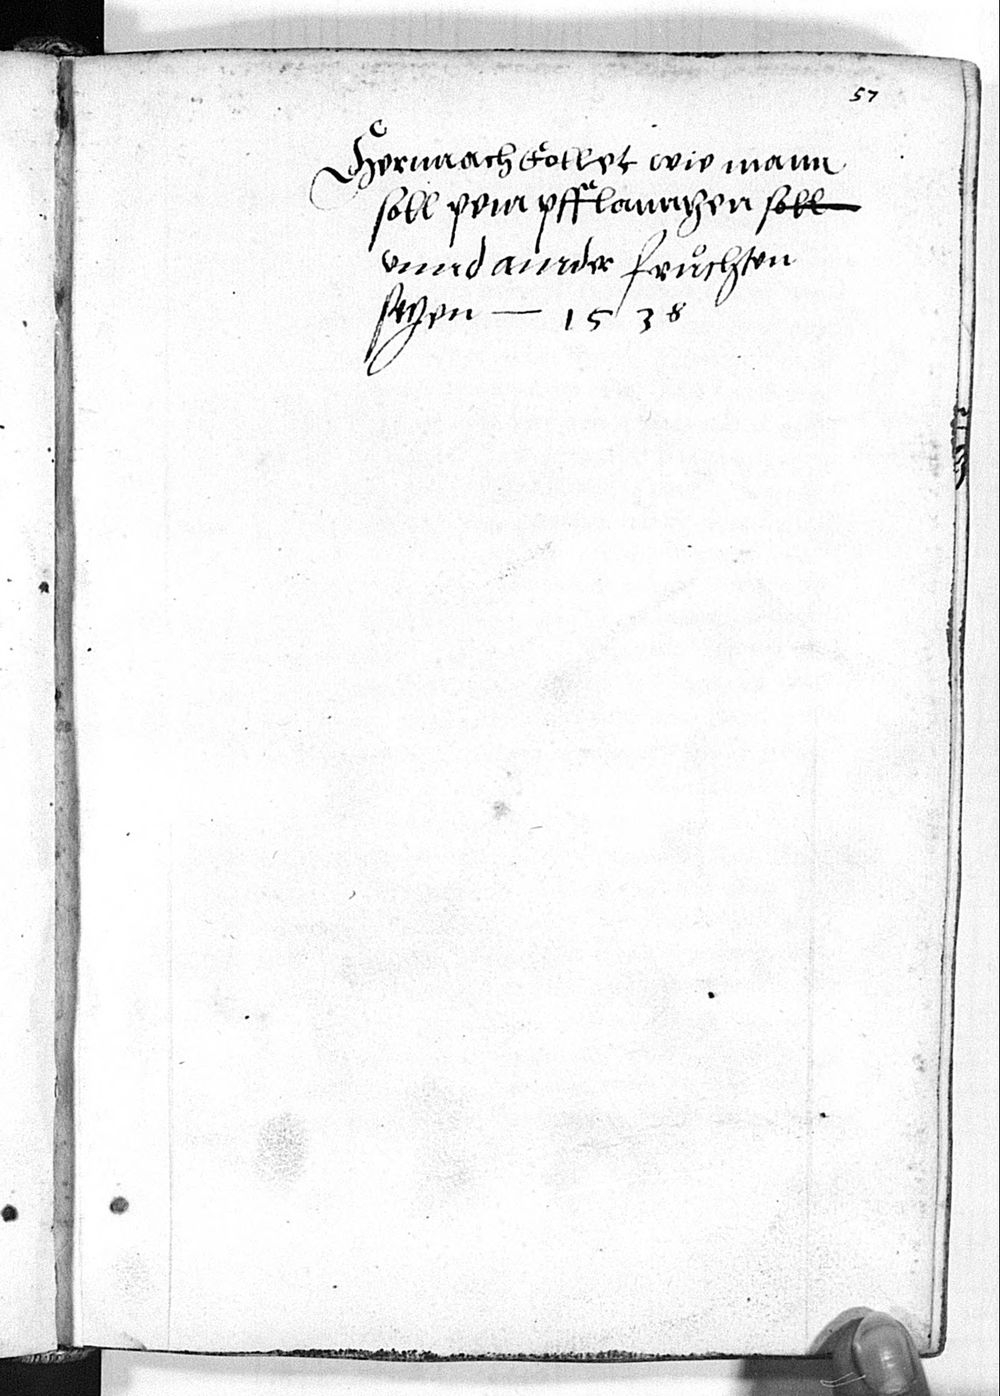 57
Hernnach follet wie mann
soll penn pfflanntzen soll
vnnd annder früchten
setzen — 1538